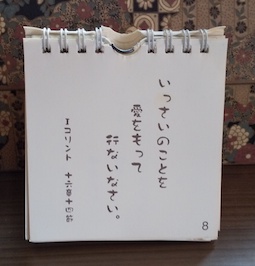 いっさいのことを
愛をもって
行ないなさい。
Ｉコリント 十六章十四節
8